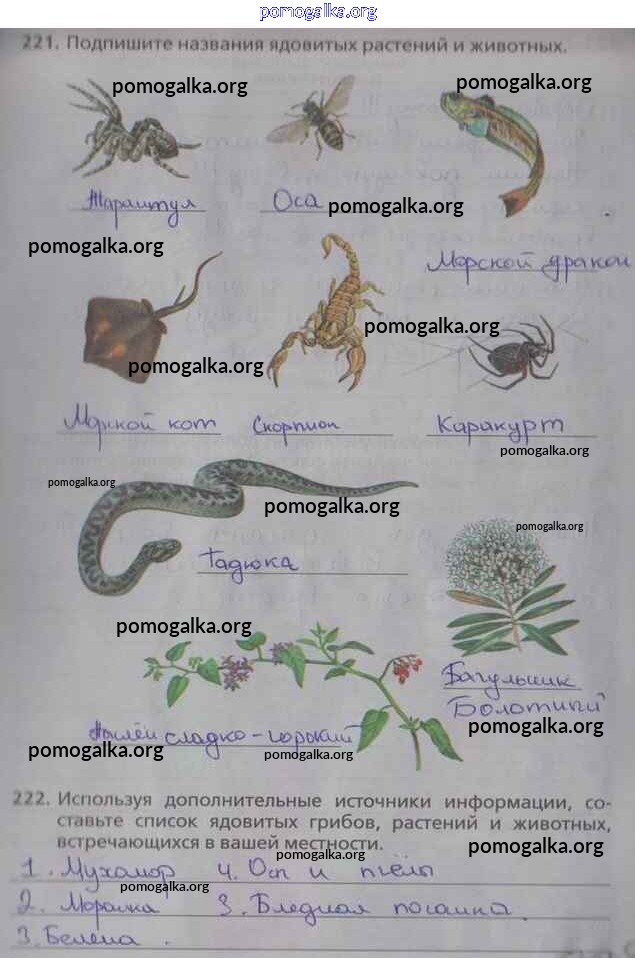 pomogalka.org
221. Подпишите названия ядовитых растений и животных.
pomogalka.org
pomogalka.org
Тарантул
Оса
pomogalka.org
pomogalka.org
Морской дракон
pomogalka.org
pomogalka.org
Морской кот
Скорпион
Каракурт
pomogalka.org
pomogalka.org
pomogalka.org
pomogalka.org
Гадюка
pomogalka.org
Багульник
Болотный
pomogalka.org
сладко-горький
pomogalka.org
pomogalka.org
222. Используя дополнительные источники информации, со-
ставьте список ядовитых грибов, растений и животных,
встречающихся в вашей местности.
pomogalka.org
pomogalka.org
1. Мухомор 4. Осп и пчёлы
pomogalka.org
2. 3. Бледная поганка.
3. Белена.